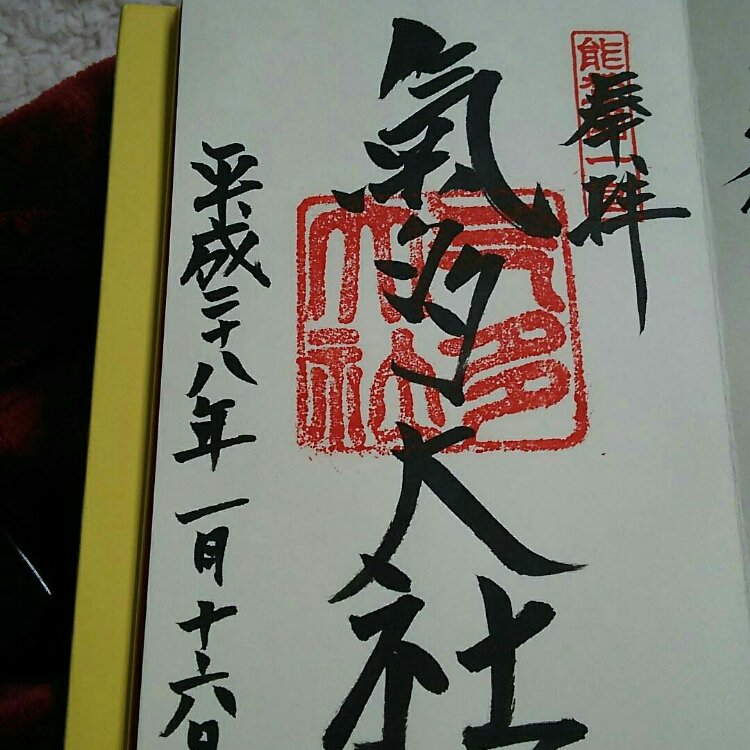 奉拝
能登國一宮
氣多大社
氣多大社
平成二十八年一月十六日